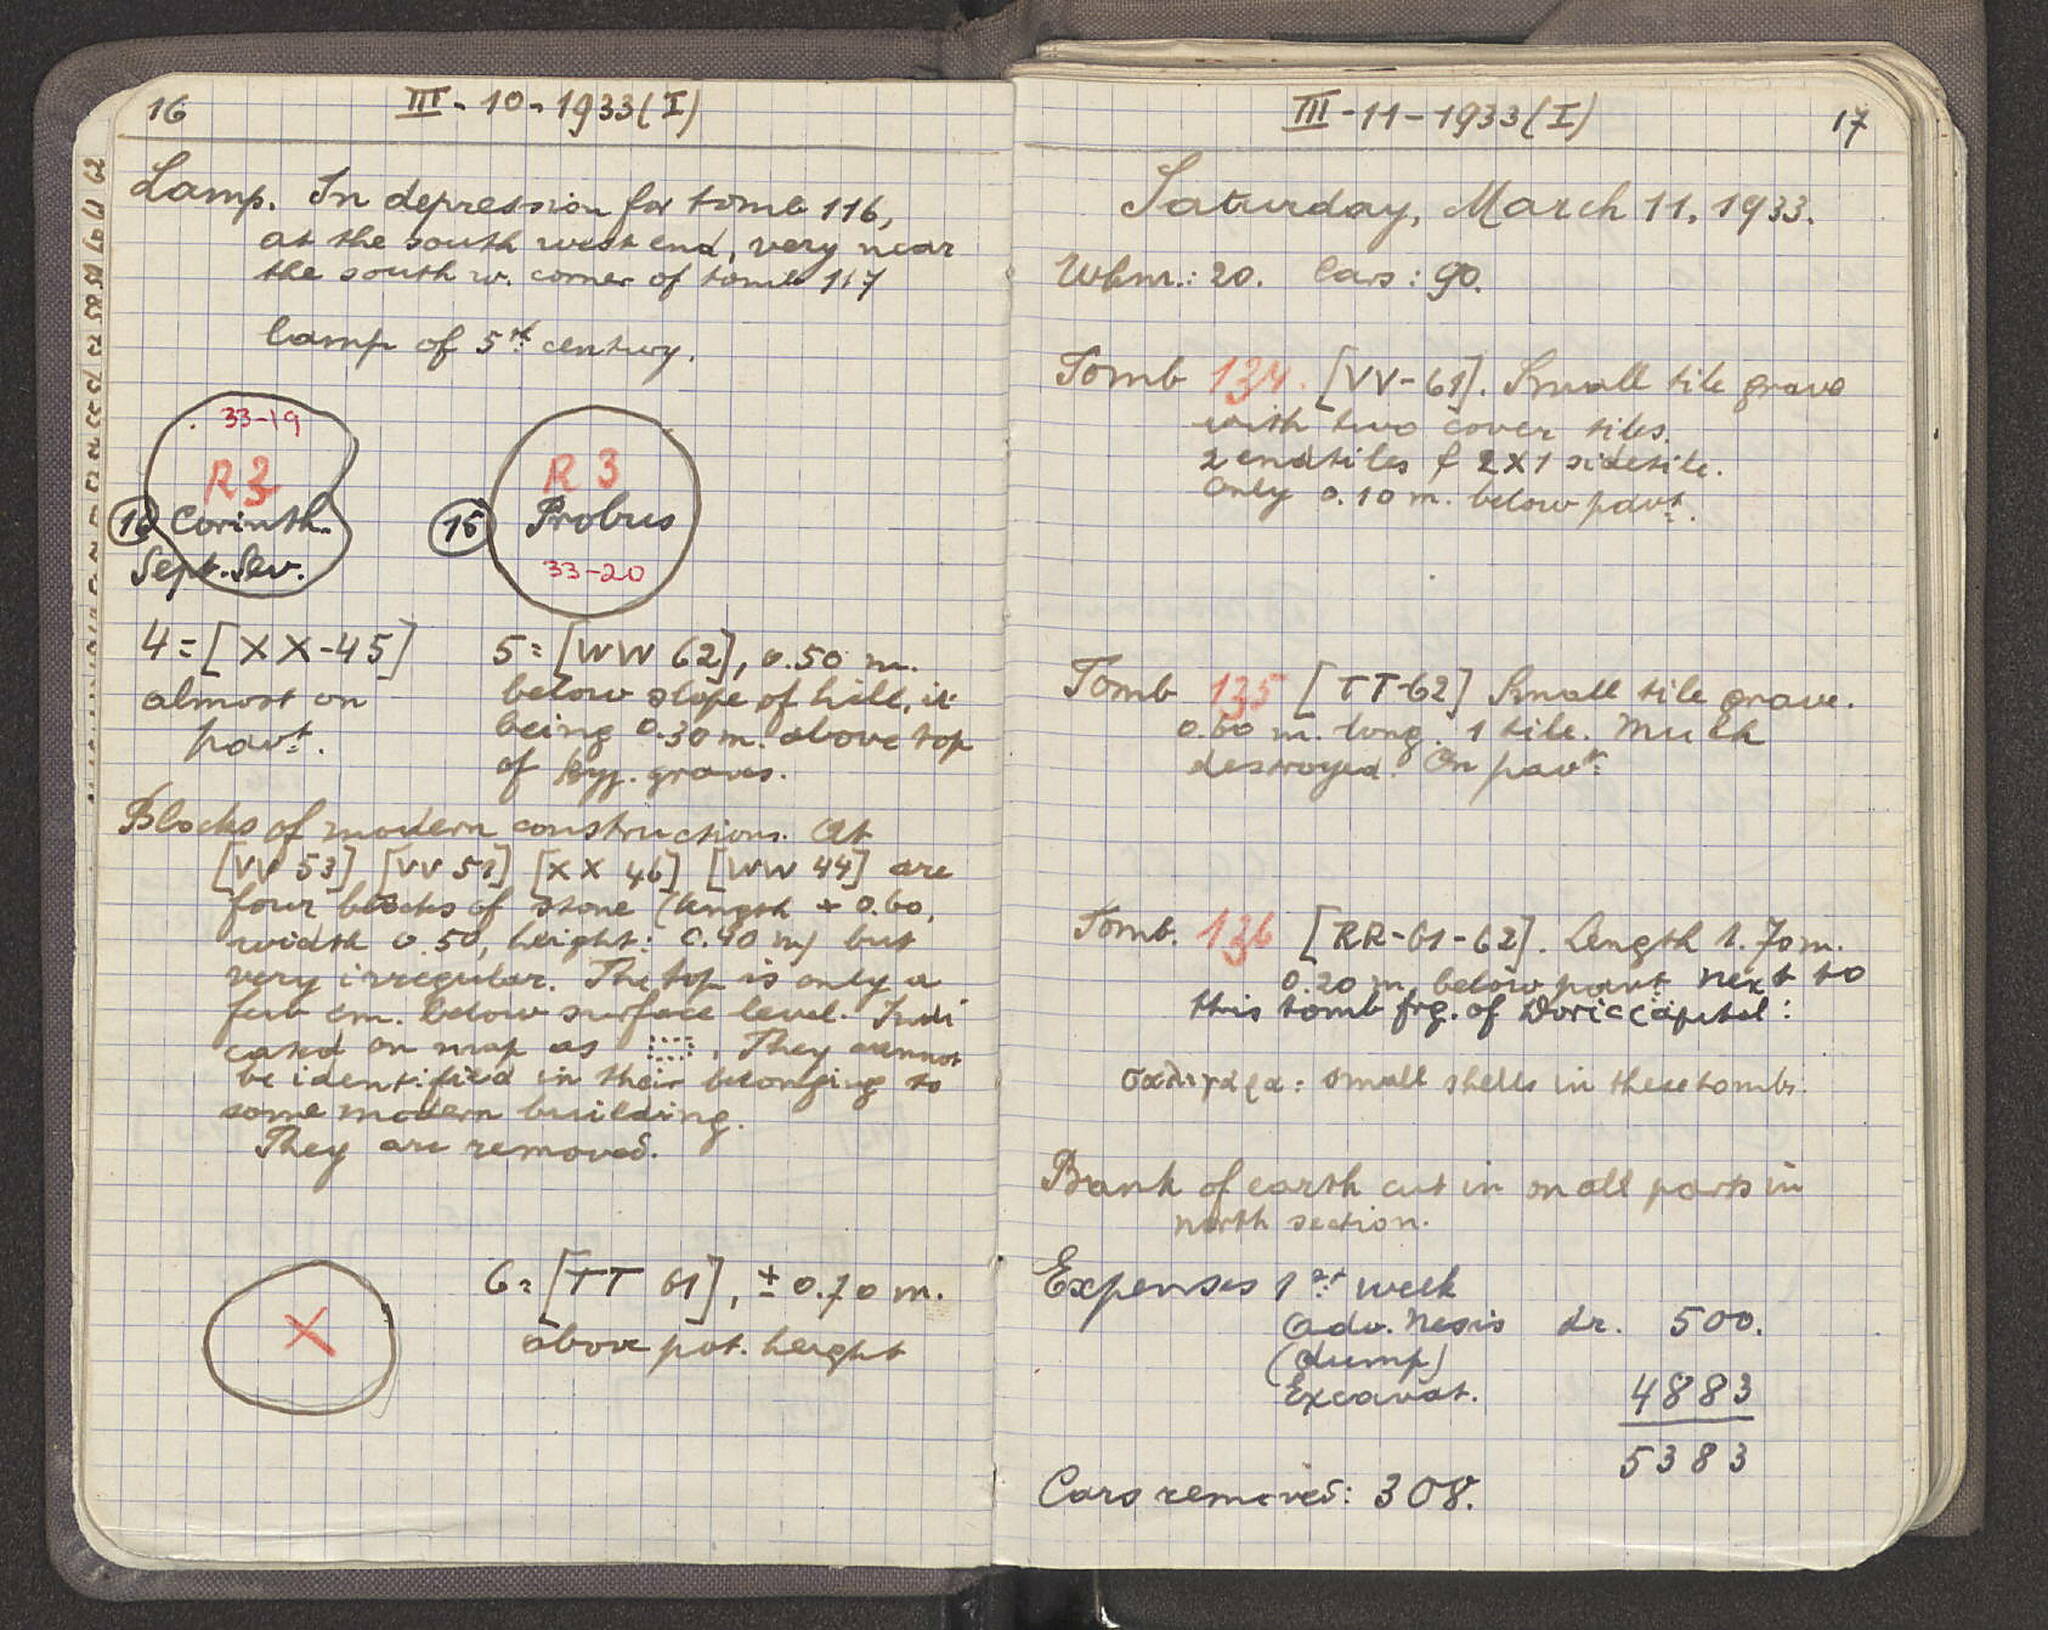 16
III-10-1933(I)
Lamp. In depression for tomb 116,
at the south west end, very near
the south w. corner of tomb 117
Lamp of 5th century.
33-19
R3
Corinth.
Sept. Sev.
R 3
15
Probus
33-20
4=[XX-45]
almost on
pavt.
5=[WW 62], 0.50 m.
below slope of hill, it
being 0.30 m. above top
of byz. graves.
Blocks of modern constructions. At
[VV 53] [VV 51] [XX 46] [WW 44] are
four blocks of stone (length ± 0.60,
width 0.50, height: 0.40 m) but
very irregular. The top is only a
few cm. below surface level. Indi
cated on map as . They cannot
be identified in their belonging to
some modern building.
They are removed.
X
6=[TT 61], ± 0.70 m.
above pvt. height
III-11-1933(I)
17
Saturday, March 11, 1933.
Wkm.: 20. Cars: 90.
Tomb 134. [VV-61]. Small tile grave
with two cover tiles.
2 endtiles & 2x1 sidetile.
Only 0.10 m. below pavt.
Tomb 135 [TT-62] Small tile grave.
0.60 m. long. 1 tile. Much
destroyed. On pavt.
Tomb. 136 [RR-61-62]. Length 1.70 m.
0.20 m. below pavt. next to
this tomb frg. of Doric capital:
: small shells in these tombs.
Bank of earth cut in small parts in
north section.
Expenses 1st week
Adv. Nesis dr. 500.
(dump)
Excavat. 4883
5383
Cars removed: 308.